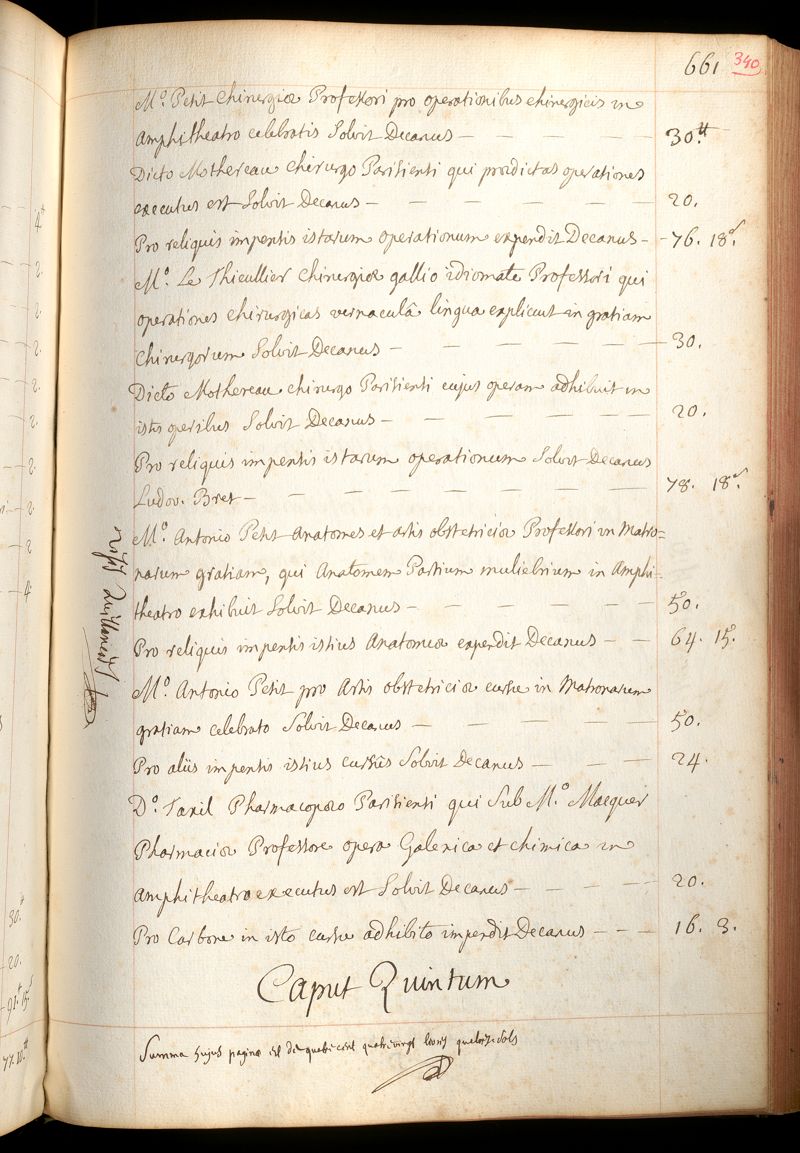 661 340
M.o Petit Chirurgiæ Professori pro operationibus chirurgicis in
Amphitheatro celebratis Solvit Decanus — 30.tt
Dicto Mothereau chirurgo Parisienti qui prædictas operationes
executus est Solvit Decanus — 20.
Pro reliquis impensis istarum operationum expendit Decanus — 76. 18.s
M.o Le Thieullier Chirurgiæ gallico idiomate Professori qui
operationes chirurgicas vernaculâ lingua explicuit in gratiam
chirurgorum Solvit Decanus — 30.
Dicto Mothereau chirurgo Parisienti cujus operam adhibuit in
istis operibus Solvit Decanus — 20.
Pro reliquis impensis istarum operationum Solvit Decanus
Ludov. Bret — 78. 18.s
M.o Antonio Petit Anatomes et artis obstetriciæ Professori in Matro=
narum gratiam, qui Anatomen Partium muliebrium in Amphi=
theatro exhibuit Solvit Decanus — 50.
Pro reliquis impensis istius Anatomiæ expendit Decanus — 64. 15.s
M.o Antonio Petit pro Artis obstetriciæ cursu in Matronarum
gratiam celebrato Solvit Decanus — 50.
Pro aliis impensis istius cursûs Solvit Decanus — 24.
D.o Taxil Pharmacopœo Parisienti qui Sub M.o Macquer
Pharmaciæ Professore opera Galenica et chimica in
Amphitheatro executus est Solvit Decanus — 20.
Pro Carbone in isto cursu adhibito impendit Decanus — 16. 3.
Caput Quintum
Summa hujus paginæ est de quatre cent quatrevingt livres quatorze sols
4.tt
2.
2.
2.
2.
2.
2.
2.
2
4.
30.tt
20.
91.tt 15.s
77. 10.tt